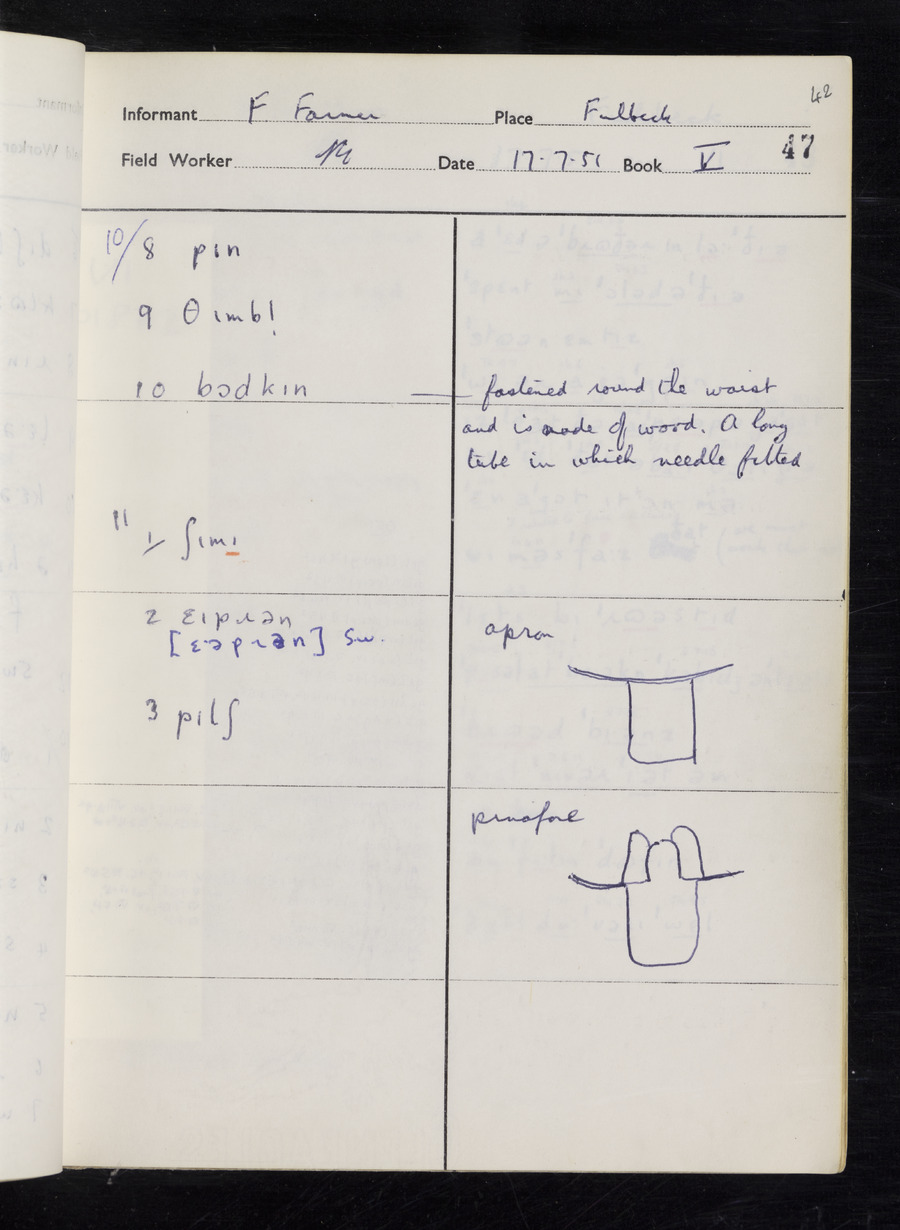 42
Informant F Farmer Place Fulbeck
47
Field Worker Date 17.7.51 Book V
10/8 pɪn
9 θɪmbl̩
10 bɔdkɪn — fastened round the waist
and is made of wood. A long
tube in which needle fitted
11 1/ ʃɪmɪ
2 ɛɪpɹən
[ɛəpɹən] Sw.
apron
3 pɪlʃ
pinafore